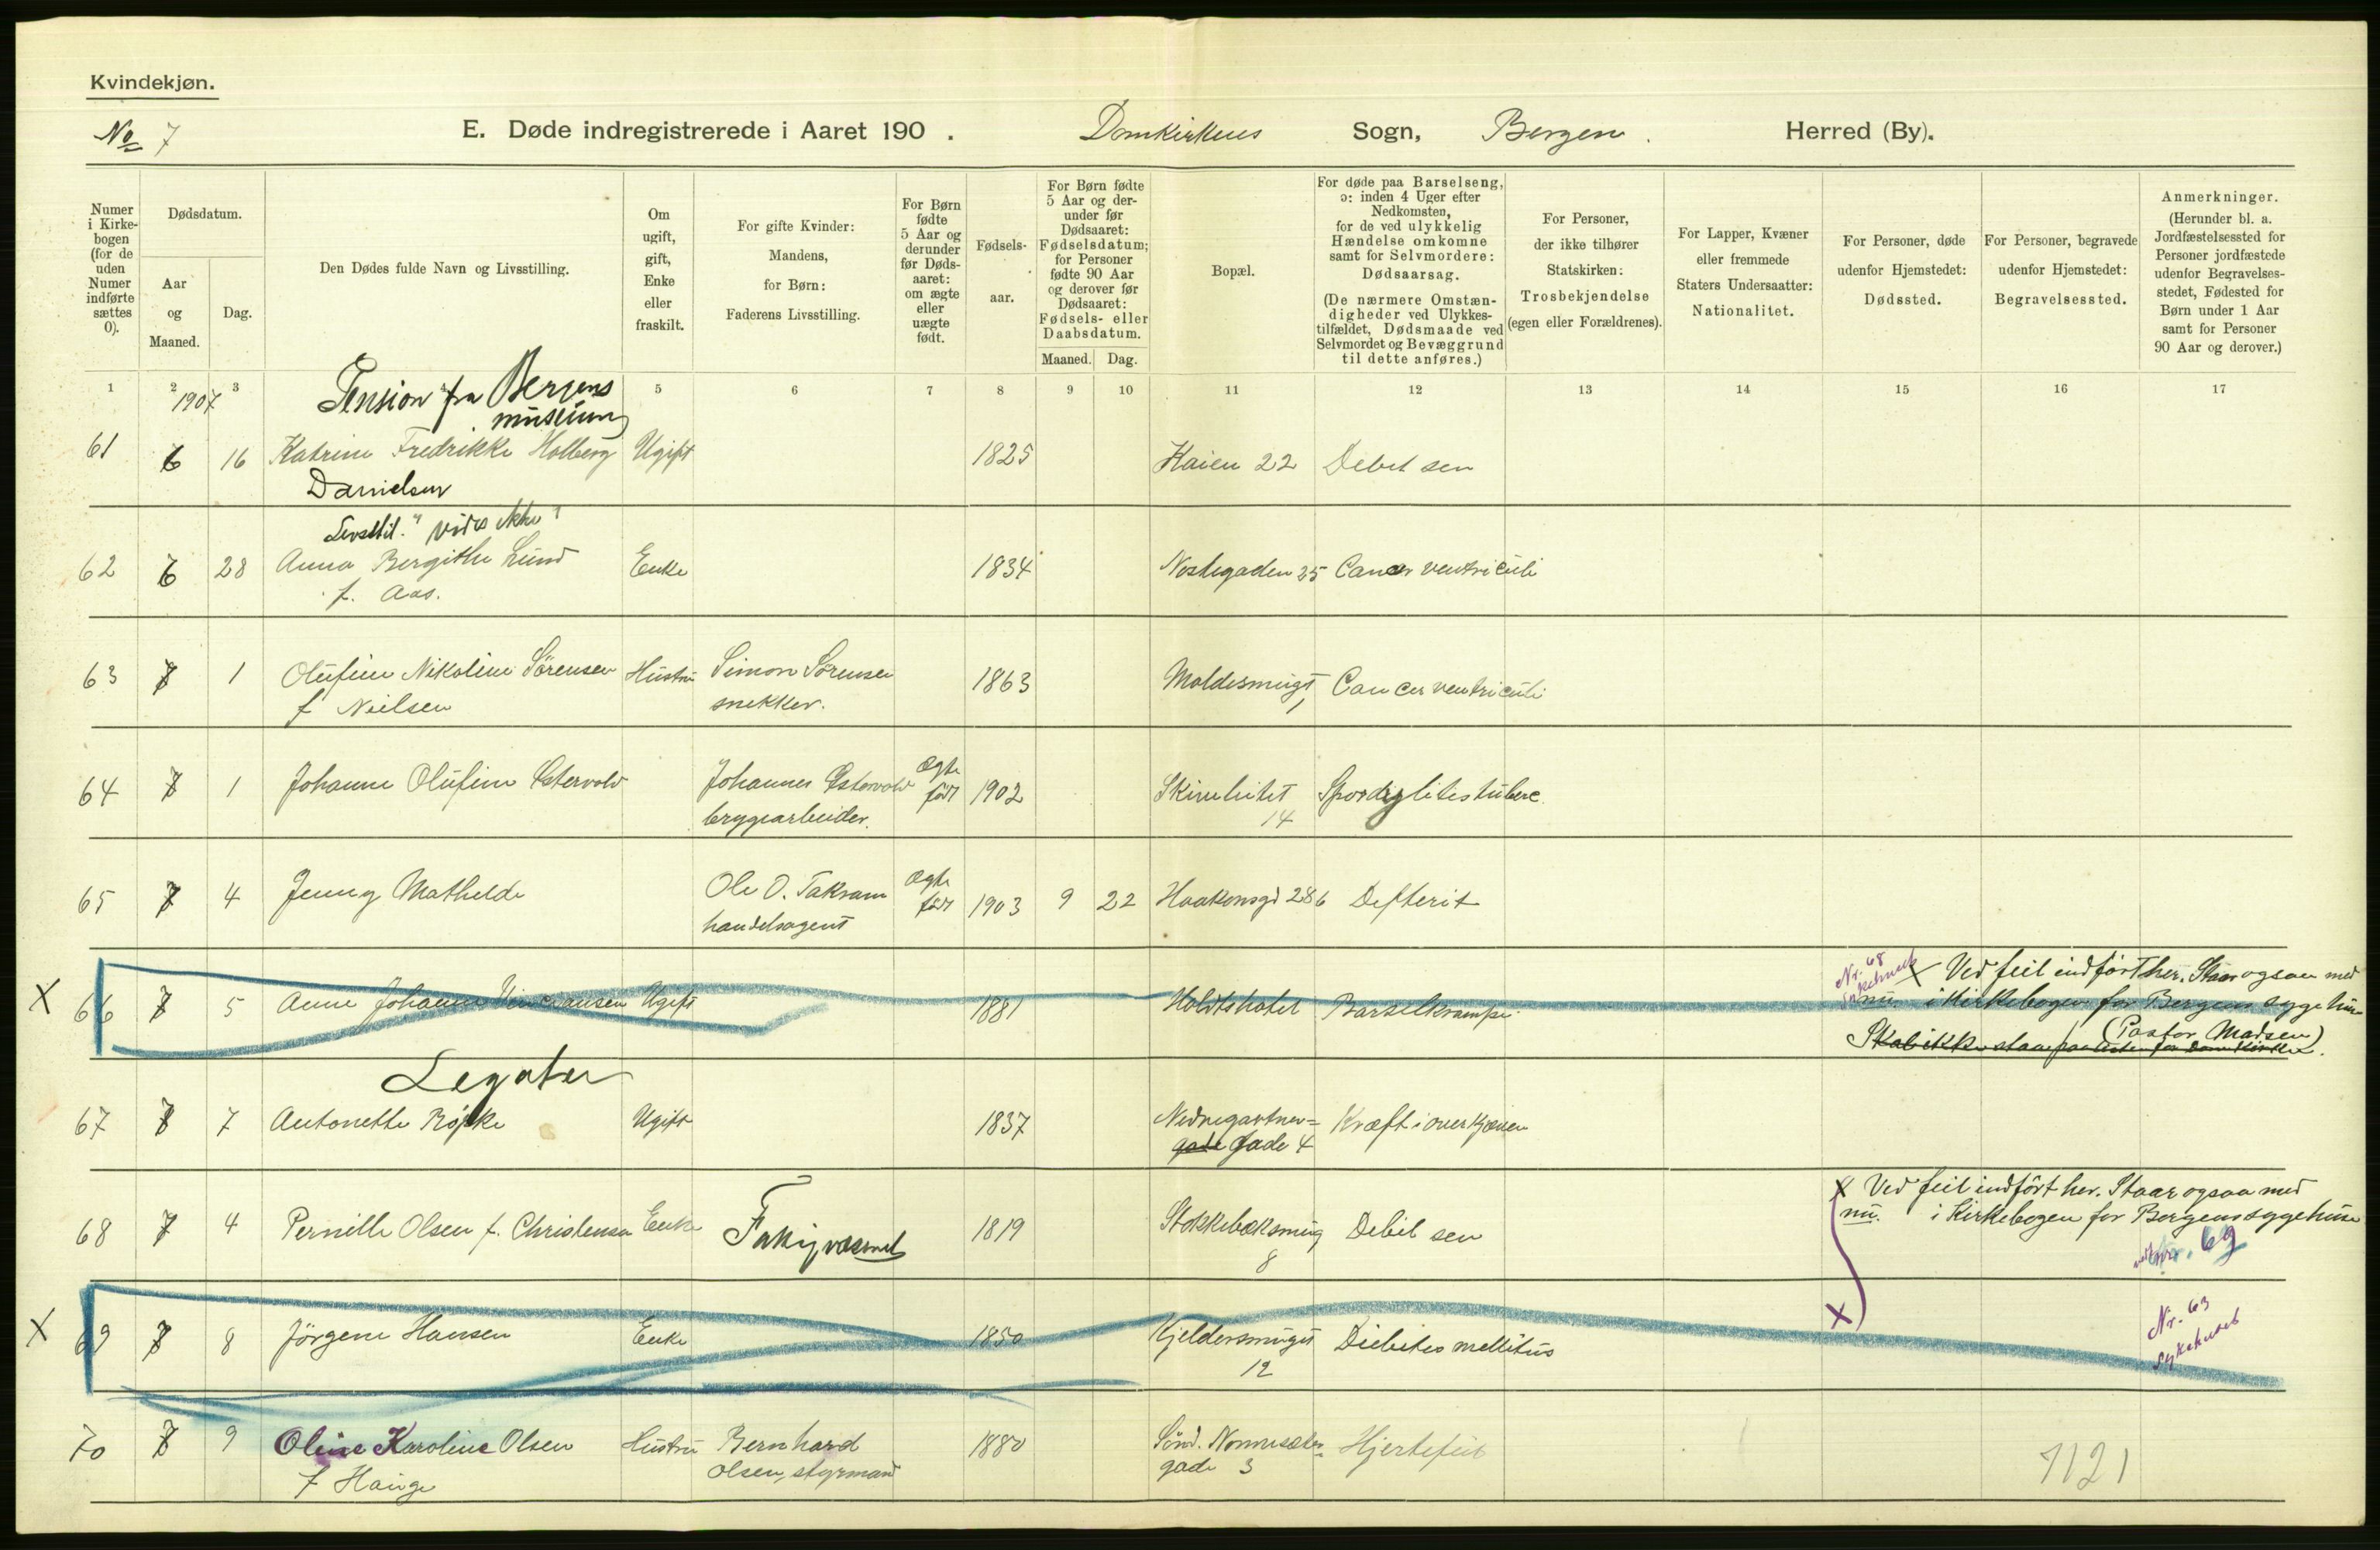 Kvindekjøn.
No 7
E. Døde indregistrerede i Aaret 190 . Domkirkens Sogn, Bergen . Herred (By).
Numer i Kirkebogen (for de uden Numer indførte sættes 0).
Dødsdatum.
Aar og Maaned.
Dag.
Den Dødes fulde Navn og Livsstilling.
Om ugift, gift, Enke eller fraskilt.
For gifte Kvinder: Mandens, for Børn: Faderens Livsstilling.
For Børn fødte 5 Aar og derunder før Dødsaaret: om ægte eller uægte født.
Fødselsaar.
For Børn fødte 5 Aar og derunder før Dødsaaret: Fødselsdatum; for Personer fødte 90 Aar og derover før Dødsaaret: Fødsels- eller Daabsdatum.
Maaned. Dag.
Bopæl.
For døde paa Barselseng, ɔ: inden 4 Uger efter Nedkomsten, for de ved ulykkelig Hændelse omkomne samt for Selvmordere: Dødsaarsag.
(De nærmere Omstændigheder ved Ulykkestilfældet, Dødsmaade ved Selvmordet og Bevæggrund til dette anføres.)
For Personer, der ikke tilhører Statskirken: Trosbekjendelse (egen eller Forældrenes).
For Lapper, Kvæner eller fremmede Staters Undersaatter: Nationalitet.
For Personer, døde udenfor Hjemstedet: Dødssted.
For Personer, begravede udenfor Hjemstedet: Begravelsessted.
Anmerkninger.
(Herunder bl. a. Jordfæstelsessted for Personer jordfæstede udenfor Begravelsesstedet, Fødested for Børn under 1 Aar samt for Personer 90 Aar og derover.)
1 2 3 5 6 7 8 9 10 11 12 13 14 15 16 17
1907
Pension fra Bergens
museum
61 6 16 Katrine Fredrikke Holberg Ugift 1825 Kaien 22 Debil sen
Danielsen
Livsstil. "vides ikke"
62 6 28 Anna Bergithe Lund Enke 1834 Nostegaden 25 Cancer ventriculi
f. Aas.
63 7 1 Olufine Nikoline Sörensen Hustru Simon Sörensen 1863 Moldesmugt 1 Cancer ventriculi
f Nielsen snekker.
64 7 1 Johanne Olufine Østervold Johannes Østervold Ægte født 1902 Skivebutet
bryggearbeider. 14
65 7 4 Jenny Mathilde Ole O. Taksam Ægte født 1903 9 22 Haakonsgd 286 Defterit
handelsagent
X 66 7 5 Anne Johanne Ugift 1881 Holdts hotel Barselkrampe.
Nr. 68 Sykehuset
X Ved feil indført her. Staar ogsaa med
nu. i Kirkebogen for Bergens sygehus
(Pastor Madsen)
Skal ikke staa paa listen for Domkirken.
Legater
67 7 7 Antonette Röpke Ugift 1837 Nedregartner= Kræft i overkjæven
gade Gade 4
68 7 4 Pernille Olsen f. Christensen Enke Fattigvæsenet 1819 Stokkebæksmug Debil sen
8
X Ved feil indført her. Staar ogsaa med
nu. i Kirkebogen for Bergens sygehus
nr. 69
X 69 7 8 Jörgene Hansen Enke 1850 Kjeldersmuget Diebites mellitus
12
X
Nr. 63
Sykehuset
70 7 9 Oline Karoline Olsen Hustru Bernhard 1880 Sönd. Nonnesæter= Hjertefeil
f Hauge Olsen, styrmand gade 3
1121